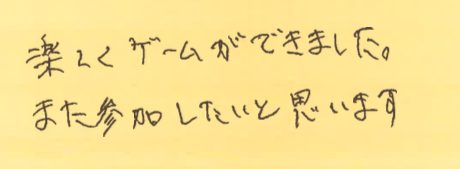 楽しくゲームができました。
また参加したいと思います